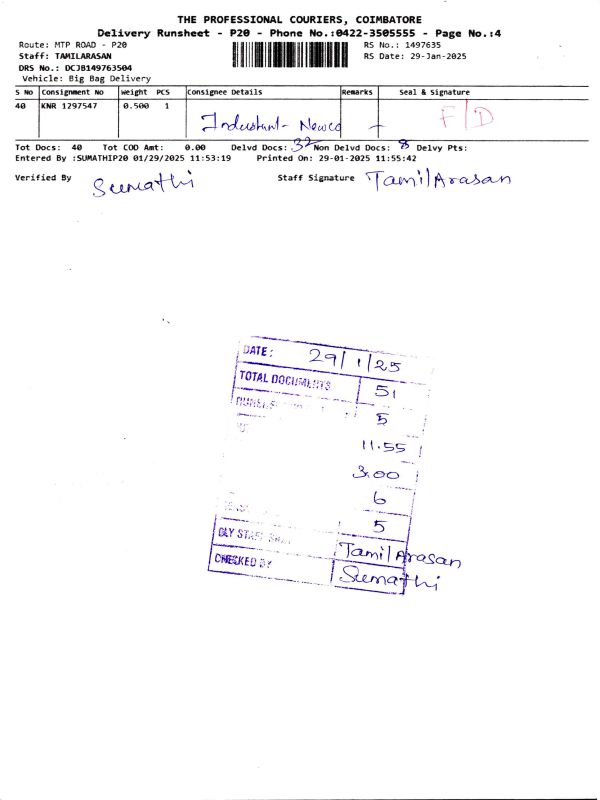 THE PROFESSIONAL COURIERS, COIMBATORE
Delivery Runsheet - P20 - Phone No.:0422-3505555 - Page No.:4
Route: MTP ROAD - P20 RS No.: 1497635
Staff: TAMILARASAN RS Date: 29-Jan-2025
DRS No.: DCJB149763504
Vehicle: Big Bag Delivery
S No Consignment No Weight PCS Consignee Details Remarks Seal & Signature
40 KNR 1297547 0.500 1 F/D
Tot Docs: 40 Tot COD Amt: 0.00 Delvd Docs: 32 Non Delvd Docs: 8 Delvy Pts:
Entered By :SUMATHIP20 01/29/2025 11:53:19 Printed On: 29-01-2025 11:55:42
Verified By Sumathi Staff Signature TamilArasan
DATE: 29/1/25
TOTAL DOCUMENTS 51
5
11.55
3.00
6
5
DLY STAFF TamilArasan
CHECKED BY Sumathi